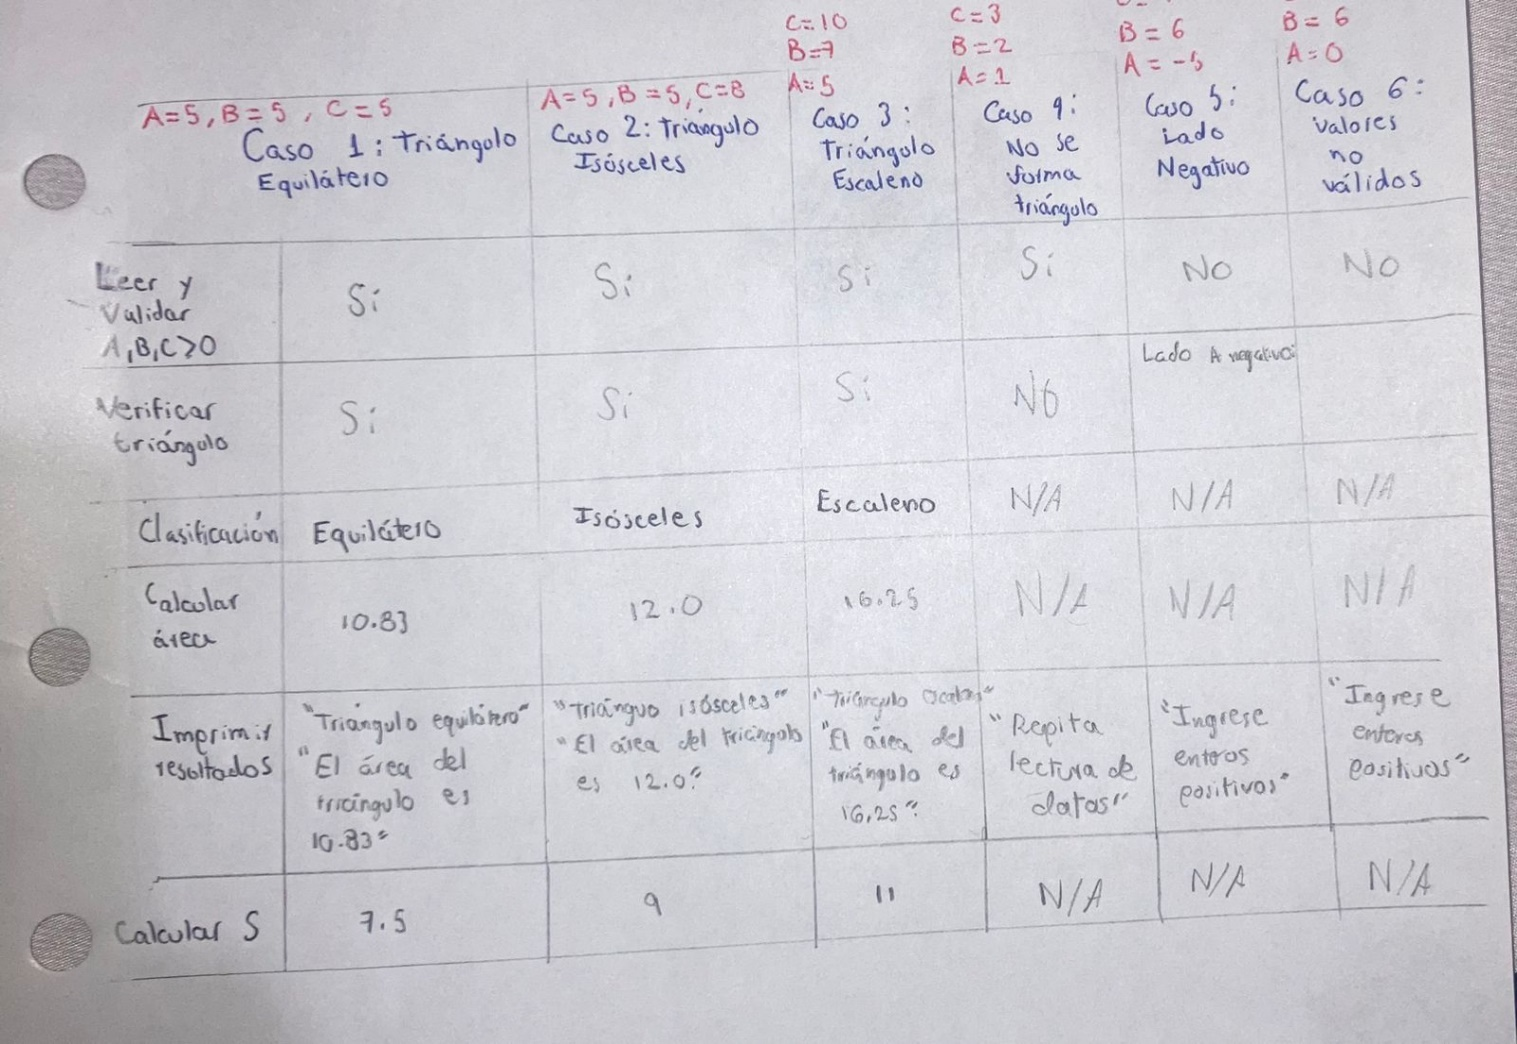 A=5, B=5, C=5
Caso 1: Triángulo
Equilátero
A=5, B=5, C=8
Caso 2: Triángulo
Isósceles
C=10
B=7
A=5
Caso 3:
Triángulo
Escaleno
C=3
B=2
A=1
Caso 4:
No se
forma
triángulo
B=6
A=-5
Caso 5:
Lado
Negativo
B=6
A=0
Caso 6:
valores
no
válidos
Leer y
Validar
A,B,C>0
Sí
Sí
Sí
Sí
NO
NO
Verificar
triángulo
Sí
Sí
Sí
NO
Lado A negativo
Clasificación
Equilátero
Isósceles
Escaleno
N/A
N/A
N/A
Calcular
área
10.83
12.0
16.25
N/A
N/A
N/A
Imprimir
resultados
"Triángulo equilátero"
"El área del
triángulo es
10.83"
"Triánguo isósceles"
"El área del triángulo
es 12.0"
"Triángulo
"El área del
triángulo es
16.25"
"Repita
lectura de
datos"
"Ingrese
enteros
positivos"
"Ingrese
enteros
positivos"
Calcular S
7.5
9
11
N/A
N/A
N/A